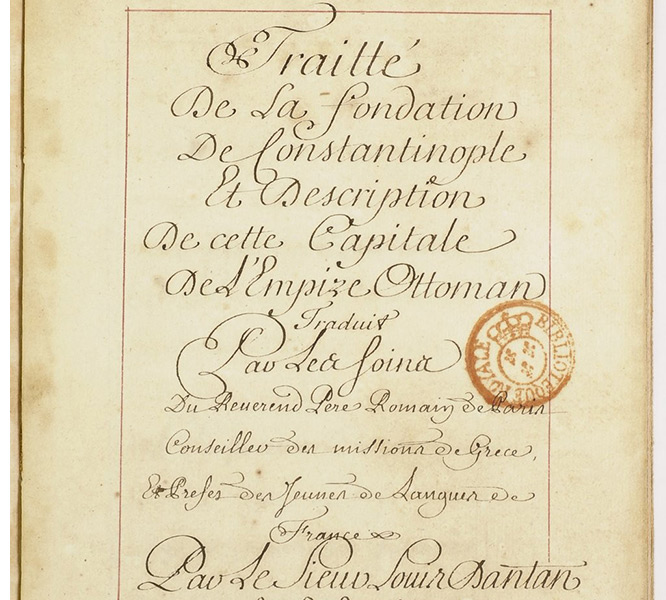 Traitté
De La fondation
De Constantinople
Et Description
De cette Capitale
De L'Empire Ottoman
Traduit
Par Les soins
Du Reverend Pere Romain de Paris
Conseiller des missions de Grece,
Et Prefet des Jeunes de Langues de
France
Par Le Sieur Louis Dantan
BIBLIOTEQUE ROYALE